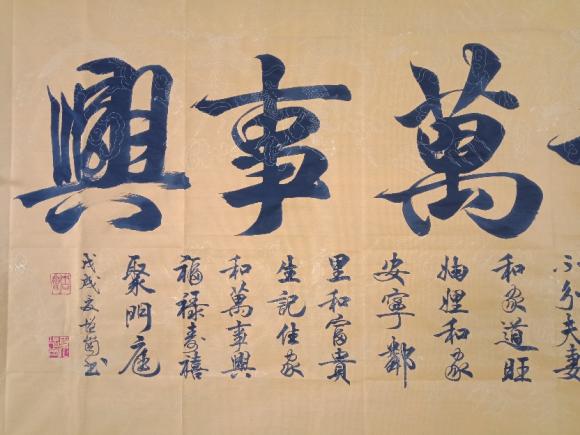 萬事興
不分夫妻
和家道旺
妯娌和家
安寧鄰
里和富貴
生記住家
和萬事興
福祿壽禧
聚門庭
戊戌夏書